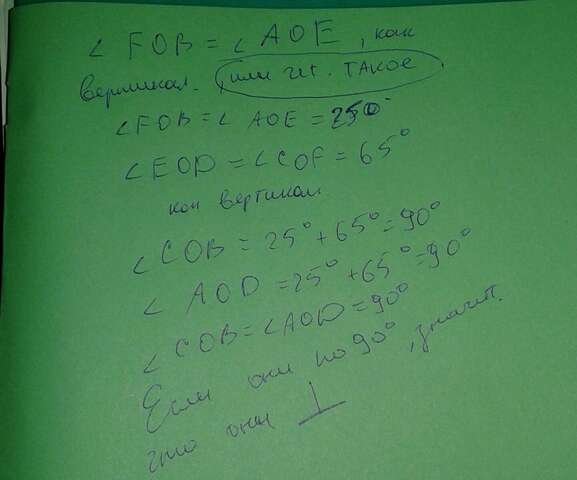 ∠ FOB = ∠ AOE, как
вертикал. или чт. ТАКОЕ
∠FOB = ∠ AOE = 250
∠EOD = ∠COF = 65°
как вертикал
∠COB = 25° + 65° = 90°
∠ AOD = 25° + 65° = 90°
∠ COB = ∠AOD = 90°
Если они по 90°, значит
что они ⊥